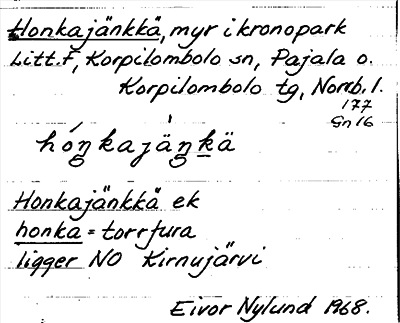 Honkajänkkä, myr i kronopark
Litt. F, Korpilombolo sn, Pajala o.
Korpilombolo tg, Norrb. l.
177
Gn 16
hóŋkajä̀ŋkä
Honkajänkkä ek
honka = torrfura
ligger NO Kirnujärvi
Eivor Nylund 1968.